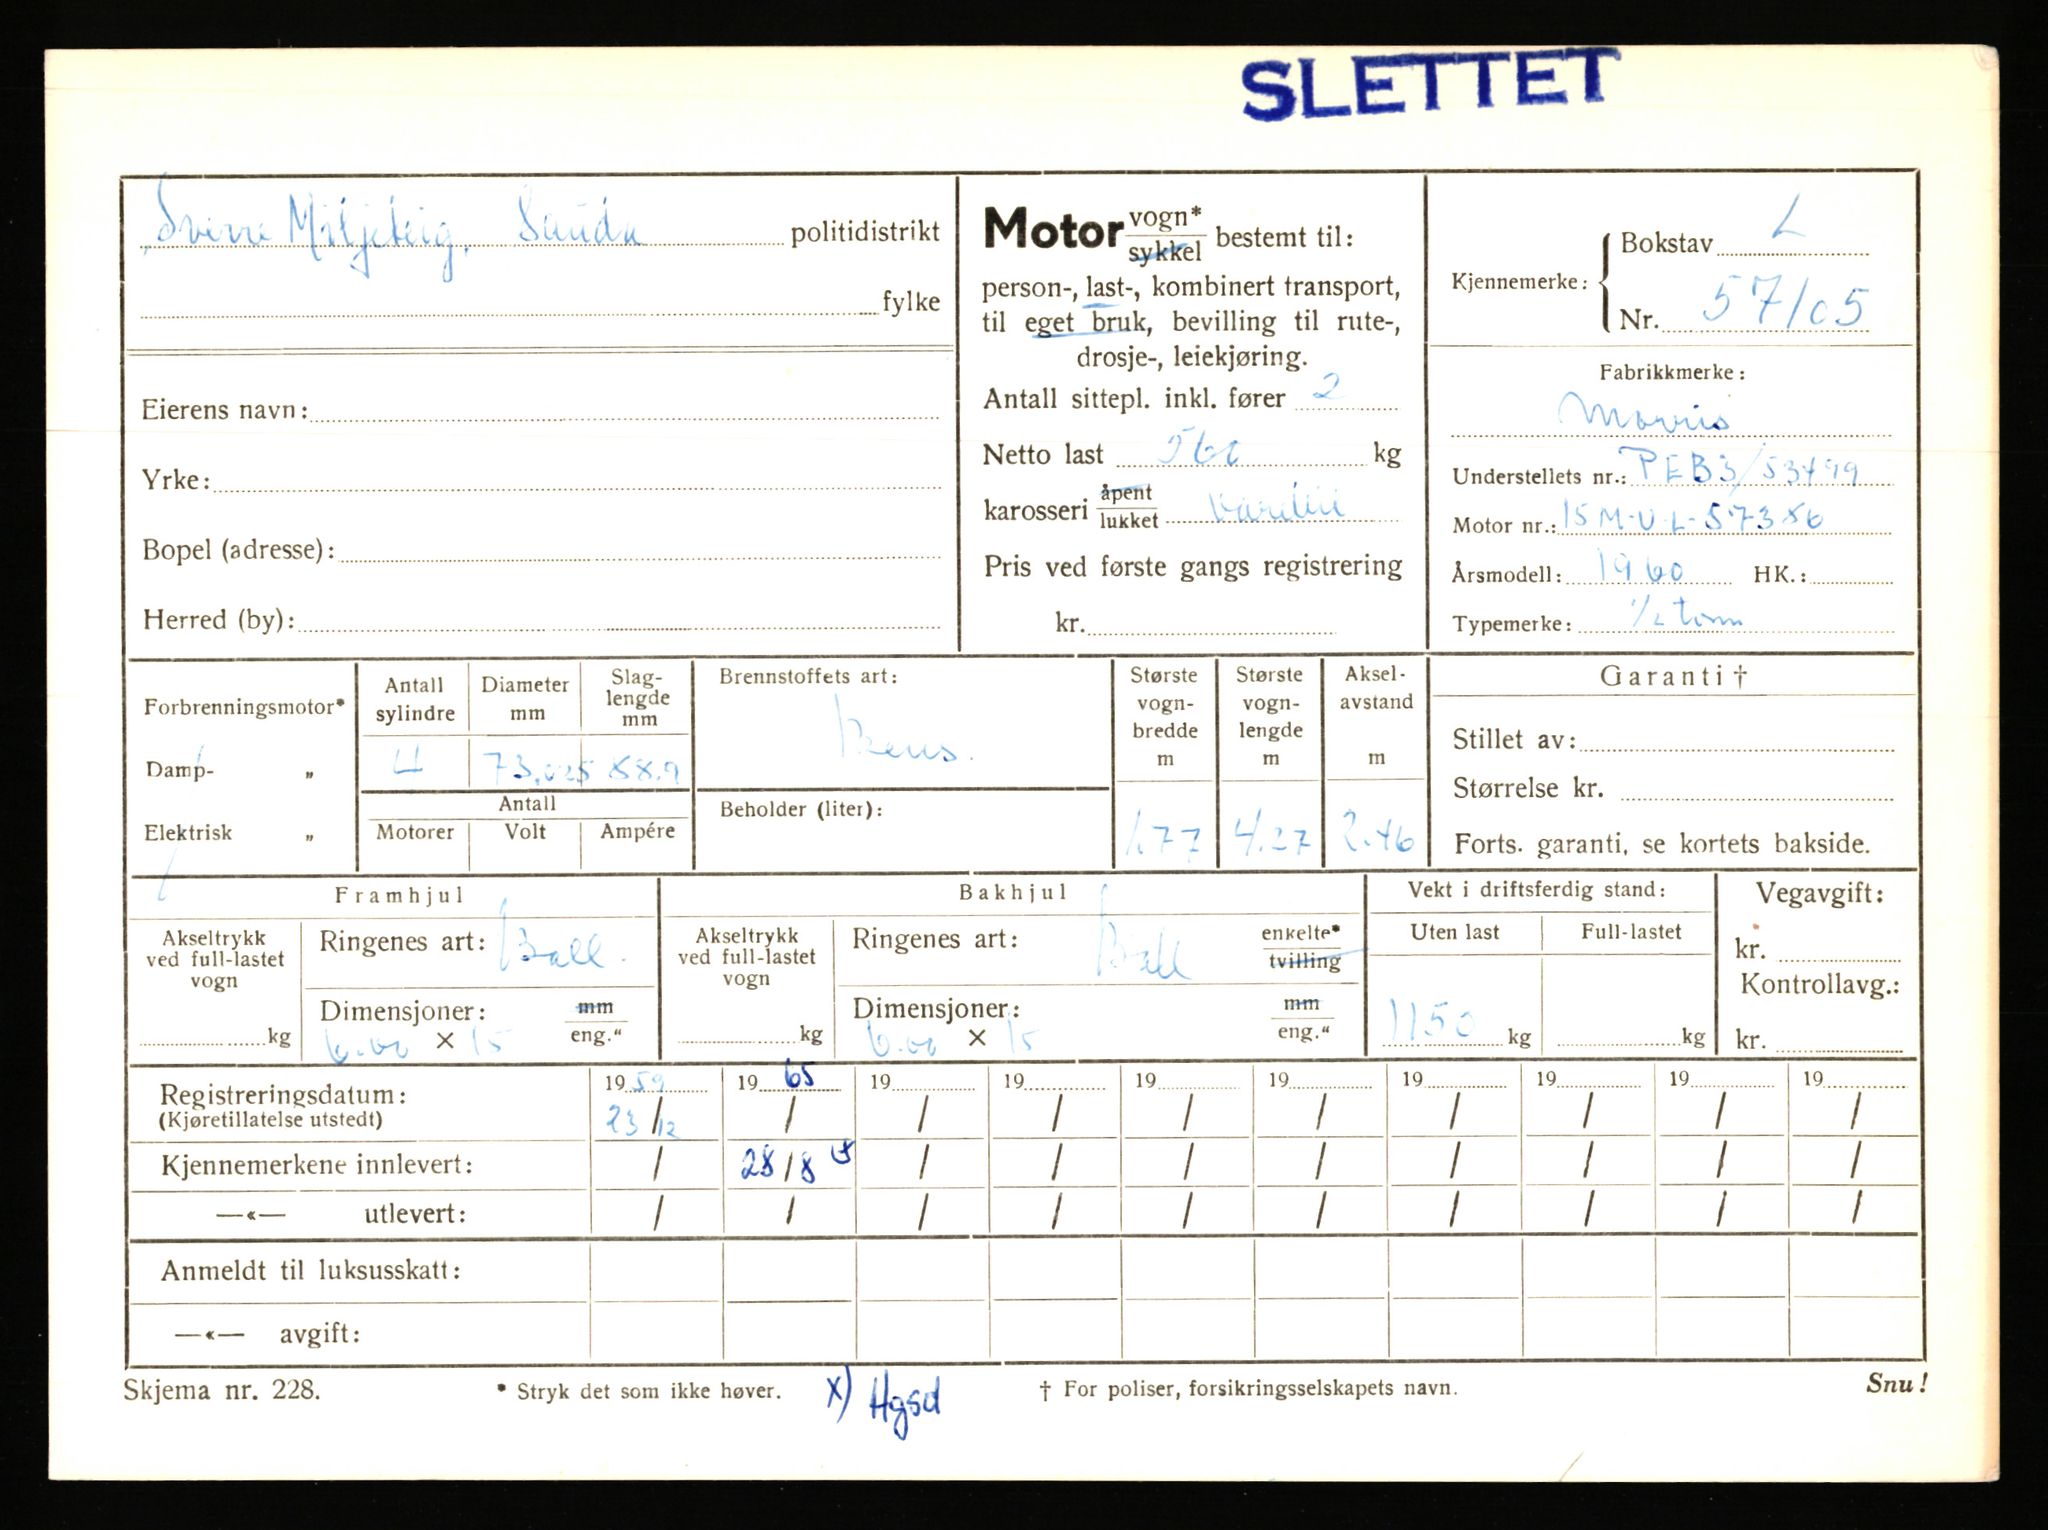 SLETTET
Sverre Miljeteig, Sauda politidistrikt
fylke
Eierens navn:
Yrke:
Bopel (adresse):
Herred (by):
Motor vogn* sykkel bestemt til:
person-, last-, kombinert transport,
til eget bruk, bevilling til rute-,
drosje-, leiekjøring.
Antall sittepl. inkl. fører 2
Netto last 560 kg
karosseri åpent lukket varebil
Pris ved første gangs registrering
kr.
Kjennemerke: Bokstav L
Nr. 57105
Fabrikkmerke:
Morris
Understellets nr.: PEB3/53499
Motor nr.: 15M-U-L-57386
Årsmodell: 1960 HK.:
Typemerke: 1/2 tonn
Forbrenningsmotor*
Damp- „
Elektrisk „
Antall sylindre
4
Diameter mm
73,025
Slag-lengde mm
88.9
Antall
Motorer Volt Ampére
Brennstoffets art:
Bens.
Beholder (liter):
Største vogn-bredde m
1.77
Største vogn-lengde m
4.27
Aksel-avstand m
2.46
Garanti †
Stillet av:
Størrelse kr.
Forts. garanti, se kortets bakside.
Framhjul
Akseltrykk ved full-lastet vogn
kg
Ringenes art: Ball.
Dimensjoner: mm eng."
6.00 × 15
Bakhjul
Akseltrykk ved full-lastet vogn
kg
Ringenes art: Ball enkelte* tvilling
Dimensjoner: mm eng."
6.00 × 15
Vekt i driftsferdig stand:
Uten last Full-lastet
1150 kg kg
Vegavgift:
kr.
Kontrollavg.:
kr.
Registreringsdatum: 19 59 19 65 19 19 19 19 19 19 19 19
(Kjøretillatelse utstedt) 23/12 / / / / / / / / /
Kjennemerkene innlevert: / 28/8 65 / / / / / / / /
—«— utlevert: / / / / / / / / / /
Anmeldt til luksusskatt:
—«— avgift:
Skjema nr. 228. * Stryk det som ikke høver. x) Hgsd † For poliser, forsikringsselskapets navn. Snu!